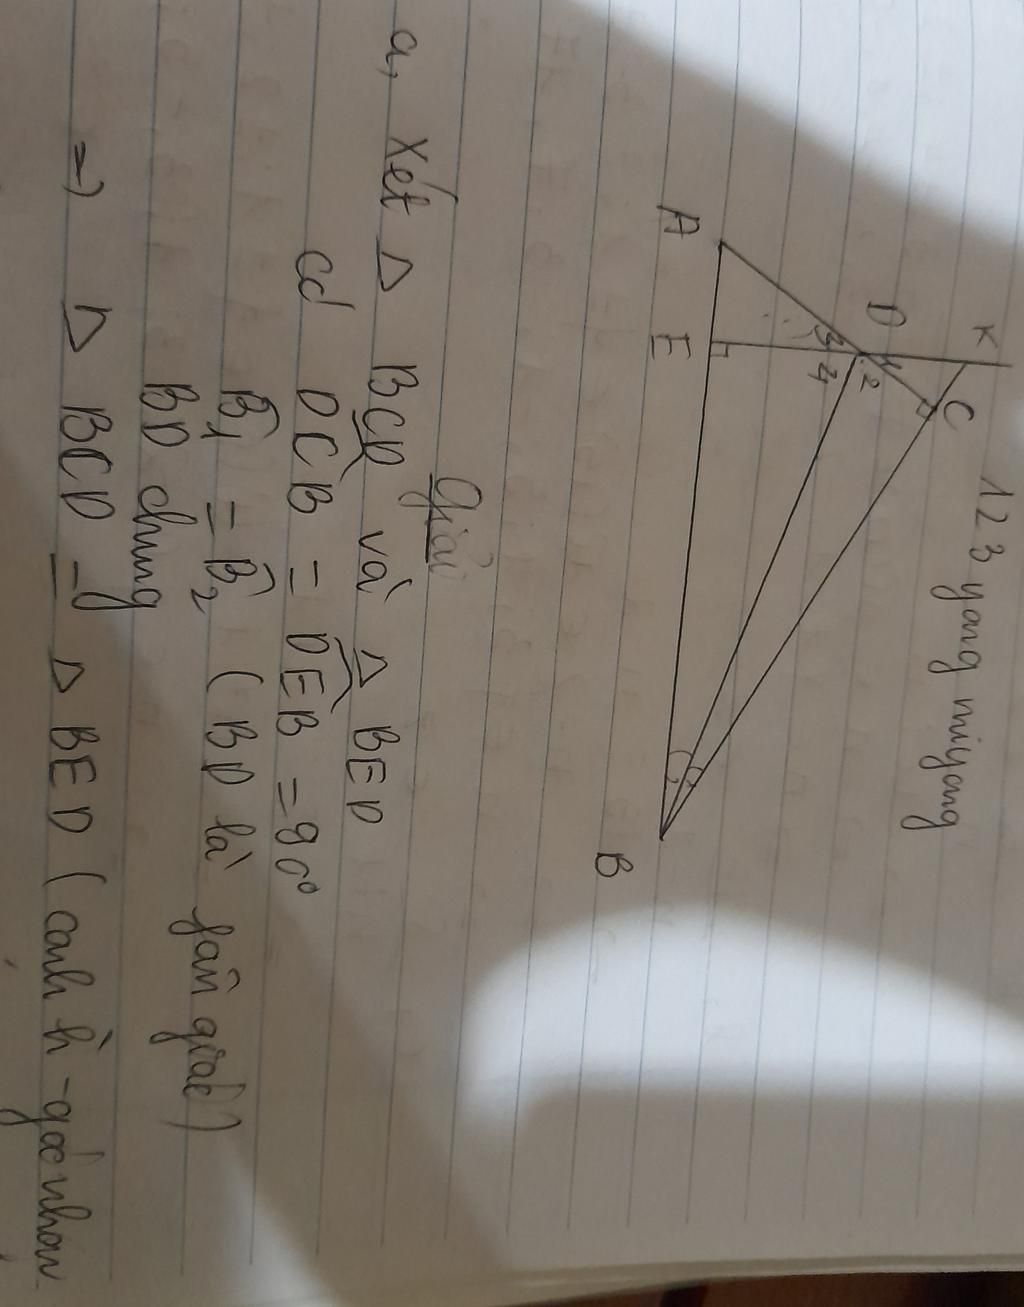 123 yang miyang
K
C
D
1
2
3
4
A
E
B
Giải
a, Xét △ BCD và △ BED
Có DĈB = DÊB = 90°
B̂1 = B̂2 (BD là fân giác)
BD chung
=) △ BCD = △ BED (cạnh h - góc nhọn